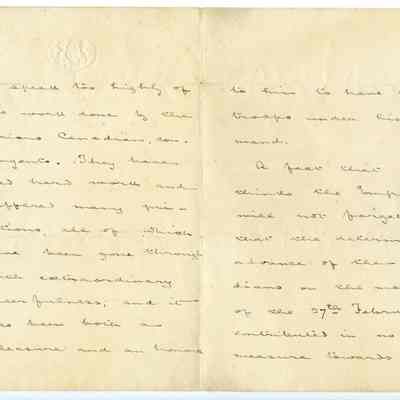 speak too highly of
work done by the
Canadian, con-
They have
hard work and
many pri-
all of which
been gone through
extraordinary
and it
been both a
and an honor
to him to have
troops under his
mand.
A fact that
think the
will not forget
that the
advance of the
dians on the
of the 27th
contributed in no
measure towards